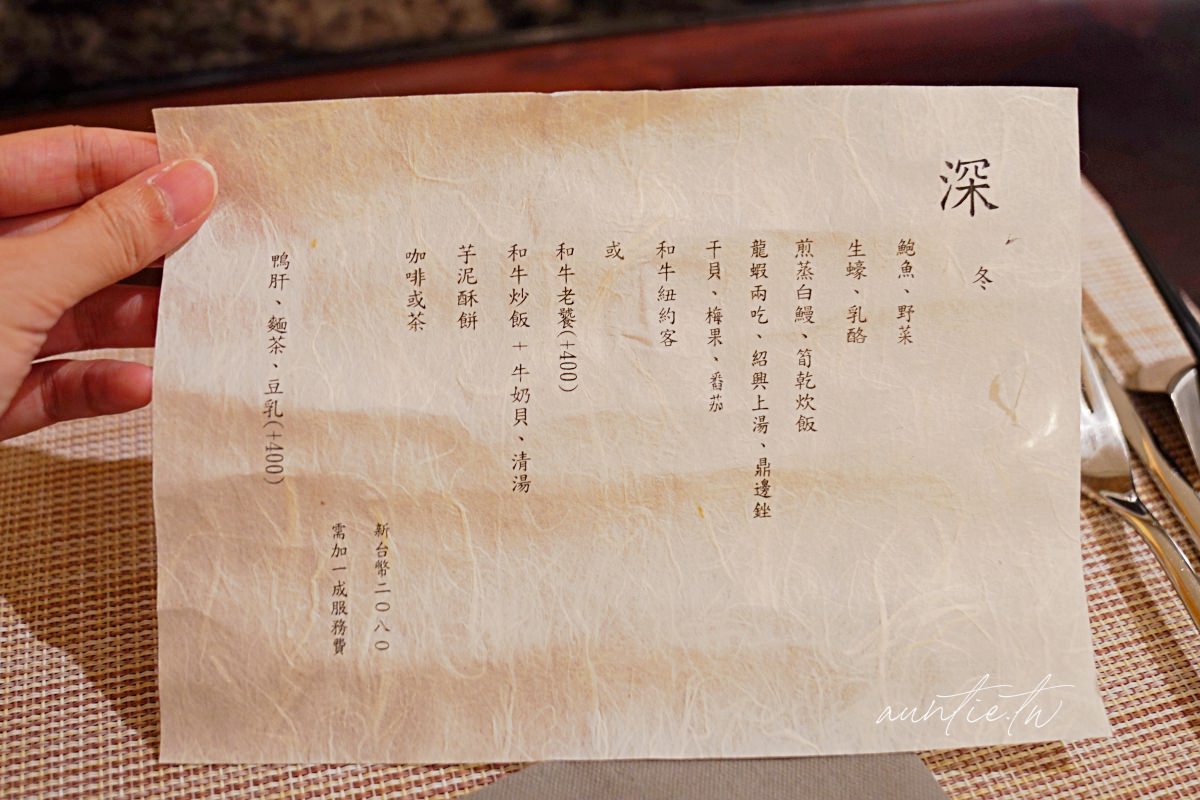 深
冬
鮑魚、野菜
生蠔、乳酪
煎蒸白鰻、筍乾炊飯
龍蝦兩吃、紹興上湯、鼎邊銼
干貝、梅果、番茄
和牛紐約客
或
和牛老饕(+400)
和牛炒飯 + 牛奶貝、清湯
芋泥酥餅
咖啡或茶
新台幣二〇八〇
需加一成服務費
鴨肝、麵茶、豆乳(+400)
auntie.tw